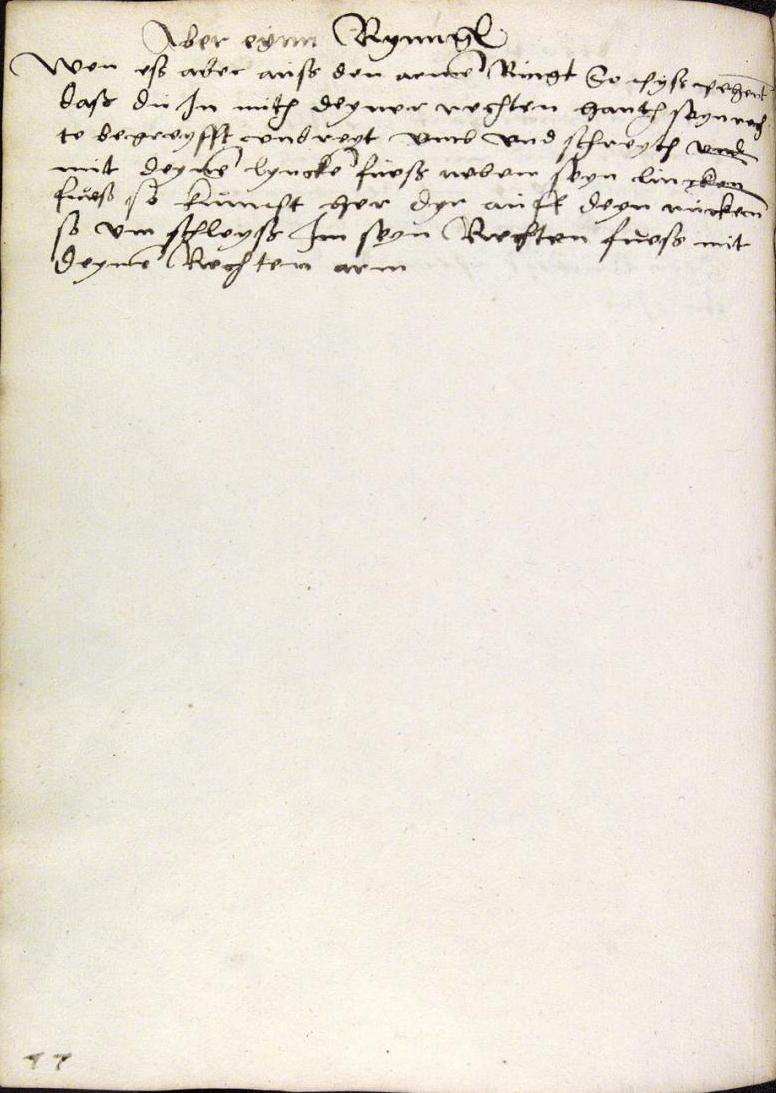 Aber eynn Ryngen
Wen eß aber auß den arme Ringt So
daß du In mith deyner rechten hanth seyn rech
te begreyfft und reyt umb und schreyth und
mit deyne lyncke fuess neben seyn lincken
fuess so kumpt her dyr auff deyn rucken
so um schleyß Im seyn Rechten fuess mit
deyne Rechten arm
77